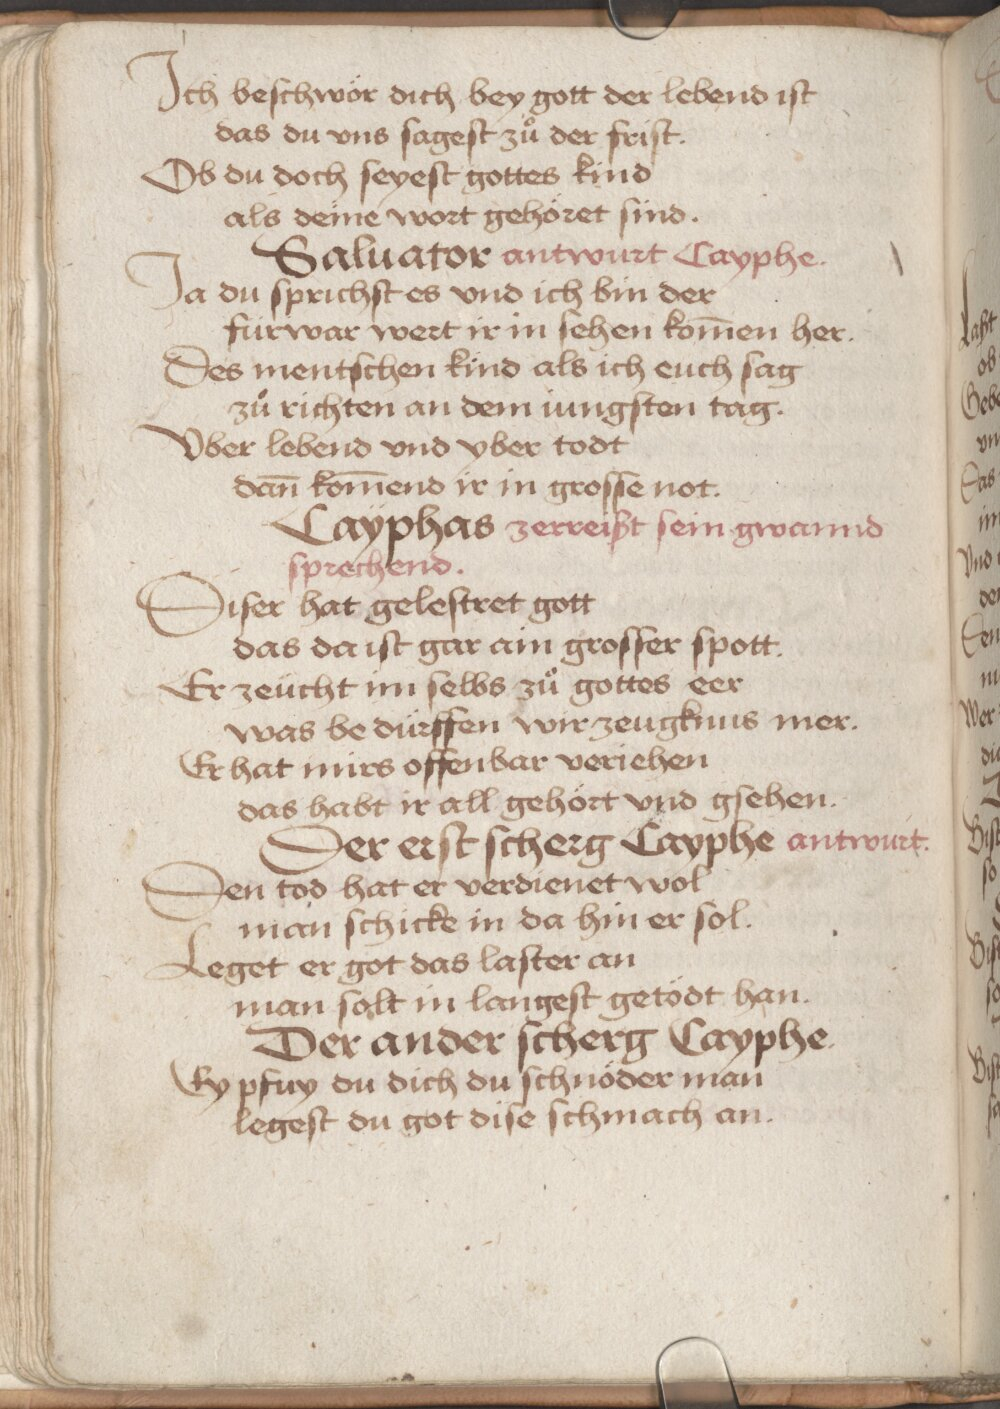 Ich beschwör dich bey gott der lebend ist
das du vns sagest zů der frist.
Ob du doch seyest gottes kind
als deine wort gehöret sind.
Saluator antwurt Cayphe.
Ja du sprichst es vnd ich bin der
fürwar wert ir in sehen kom̄en her.
Des mentschen kind als ich euch sag
zů richten an dem iungsten tag.
Vber lebend vnd yber todt
dan̄ kom̄end ir in grosse not.
Cayphas zerreißt sein gwannd
sprechend.
Diser hat gelestret gott
das da ist gar ain grosser spott.
Er zeücht im selbs zů gottes eer
was bedürffen wir zeugknus mer.
Er hat mirs offenbar veriehen
das habt ir all gehört vnd gsehen.
Der erst scherg Cayphe antwurt.
Den tod hat er verdienet wol
man schicke in da hin er sol.
Leget er got das laster an
man solt in langest getödt han.
Der ander scherg Cayphe.
Ey pfuy du dich du schnöder man
legest du got dise schmach an.